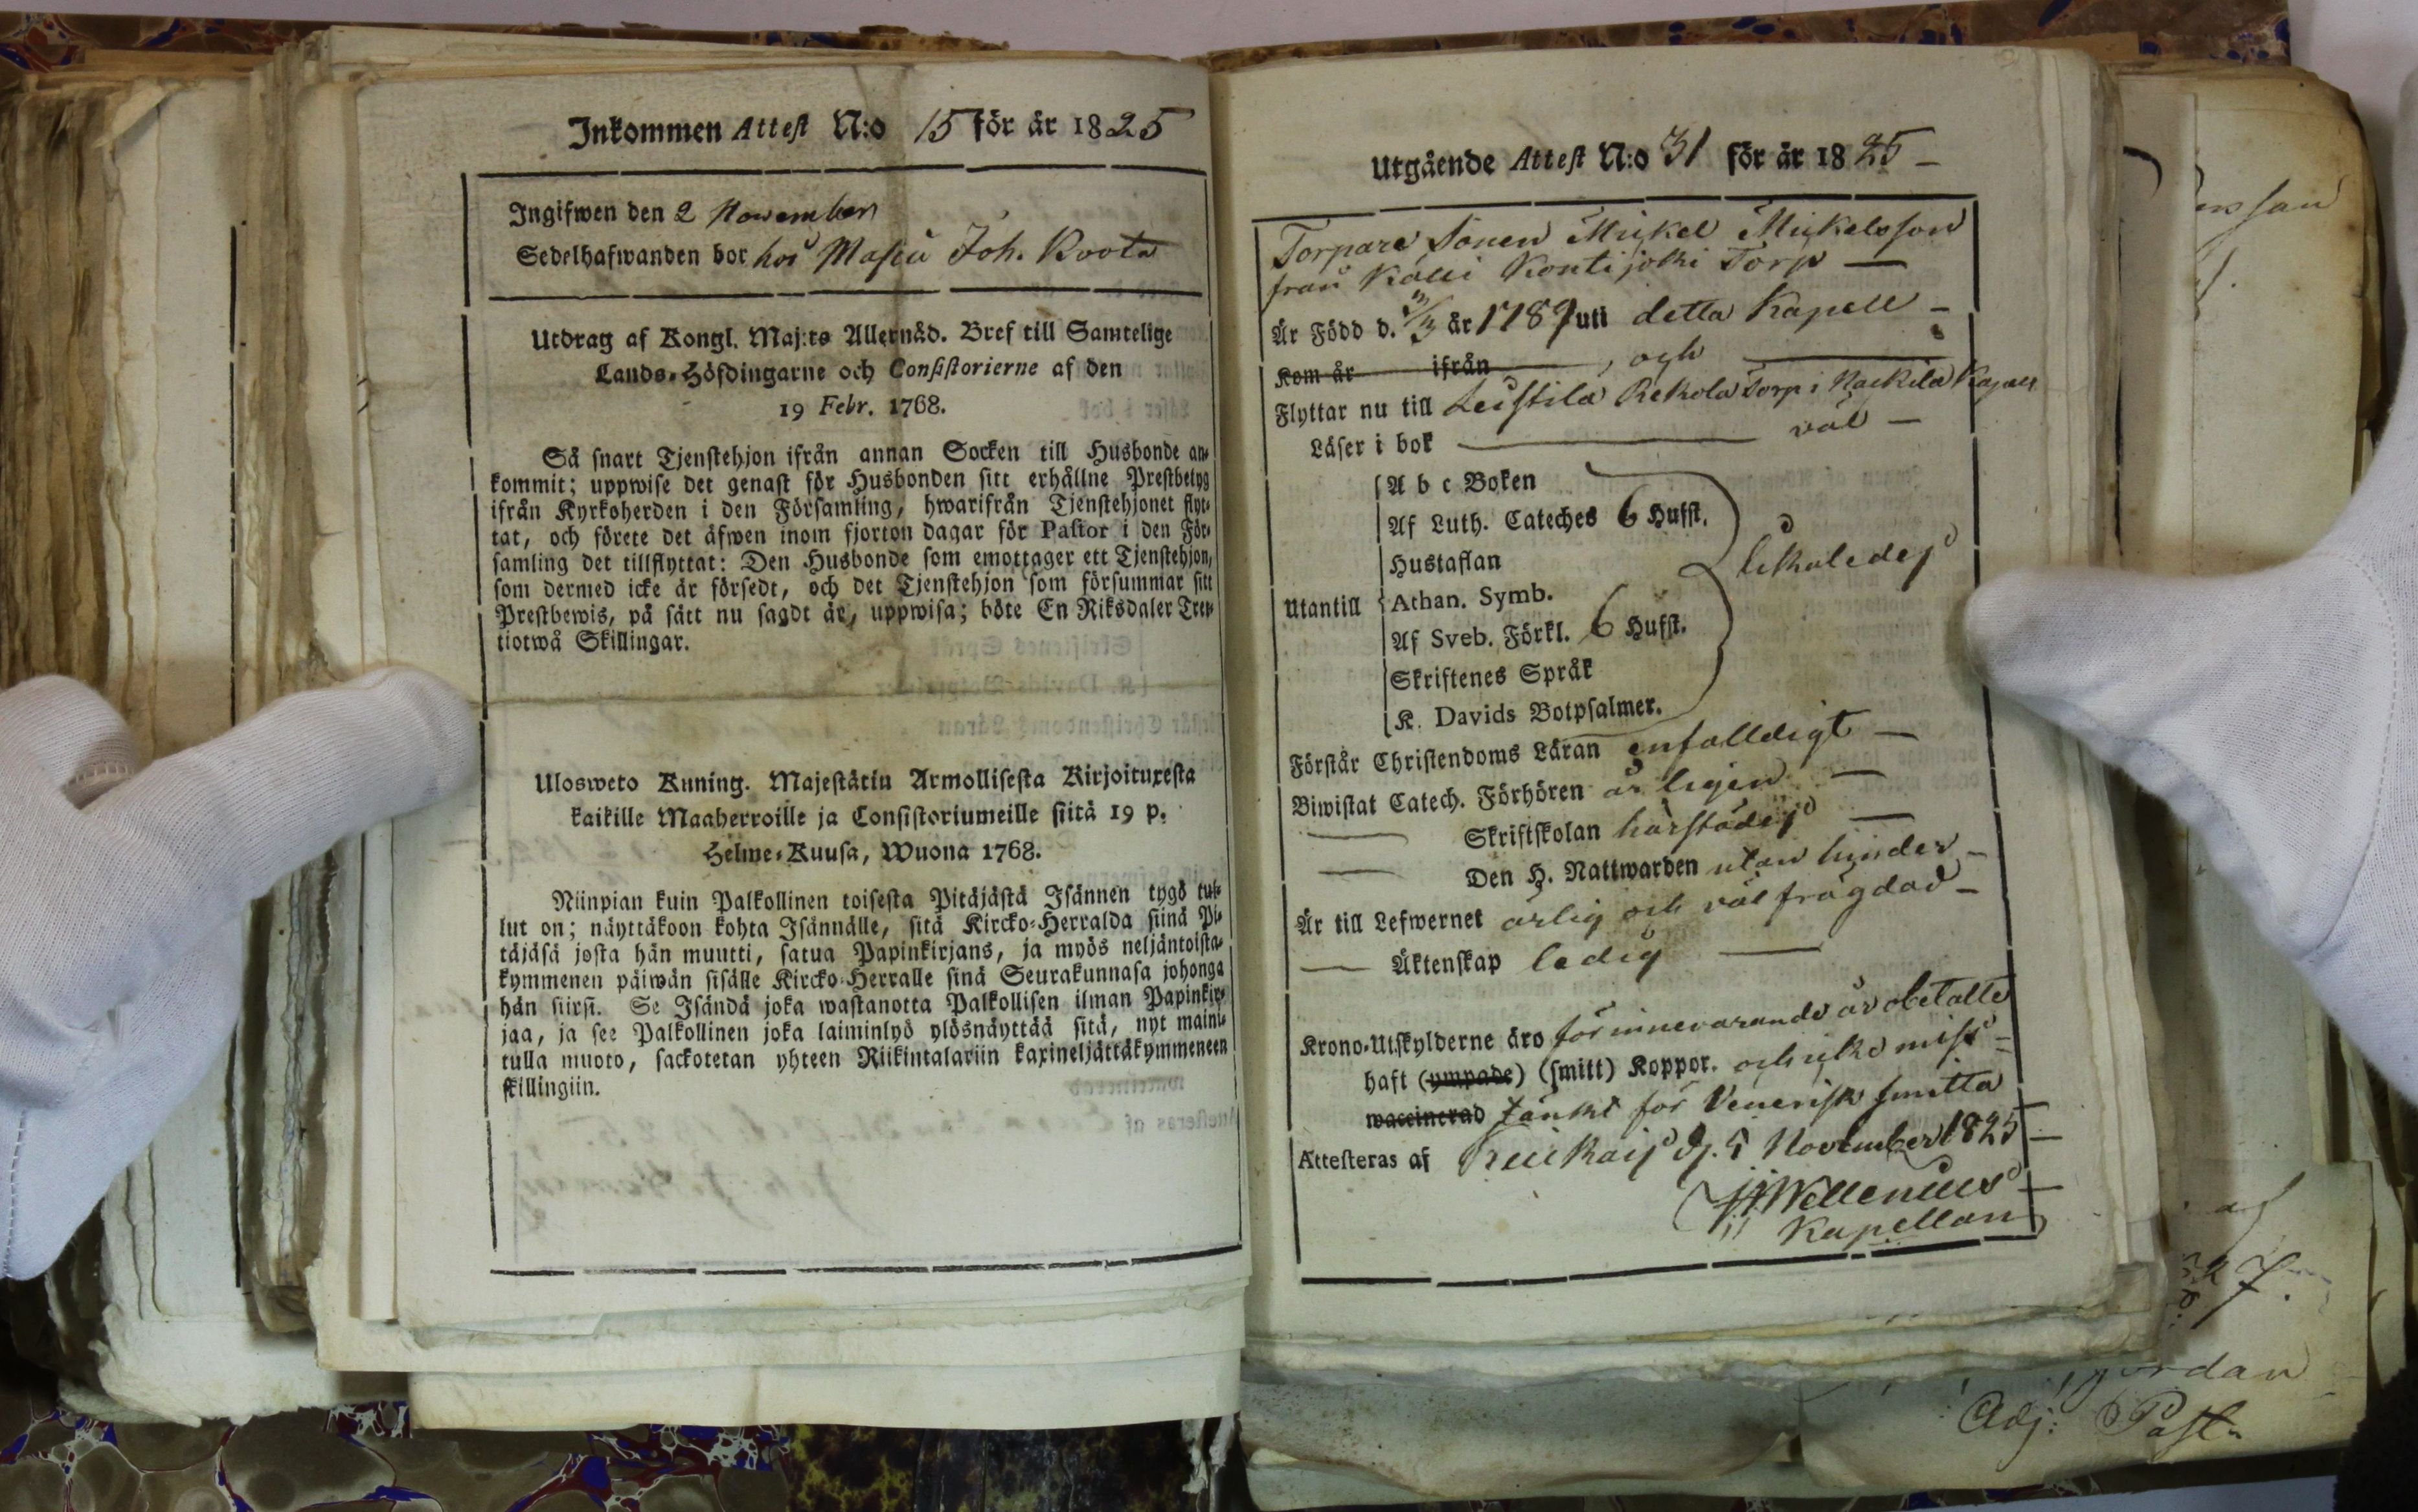 Inkommen Attest N:o 15 för år 1825
Ingifwen den 2 November
Sedelhafwanden bor hos Joh. Koota
Utdrag af Kongl. Maj:ts Allernåd. Bref till Samtelige
Lands-Höfdingarne och Consistorierne af den
19 Febr. 1768.
Så snart Tjenstehjon ifrån annan Socken till Husbonde an-
kommit; uppwise det genast för Husbonden sitt erhållne Prestbetyg
ifrån Kyrkoherden i den Församling, hwarifrån Tjenstehjonet flyt-
tat, och förete det äfwen inom fjorton dagar för Pastor i den För-
samling det tillflyttat: Den Husbonde som emottager ett Tjenstehjon,
som dermed icke är försedt, och det Tjenstehjon som försummar sitt
Prestbewis, på sätt nu sagdt är, uppwisa; böte En Riksdaler Tret-
tiotwå Skillingar.
Ulosweto Kuning. Majestätin Armollisesta Kirjoituxesta
kaikille Maaherroille ja Consistoriumeille siitä 19 p.
Helme-Kuusa, Wuona 1768.
Niinpian kuin Palkollinen toisesta Pitäjästä Isännen tygö tul-
lut on; näyttäkoon kohta Isännälle, sitä Kircko-Herralda siinä Pi-
täjäsä josta hän muutti, satua Papinkirjans, ja myös neljäntoista-
kymmenen päiwän sisälle Kircko-Herralle sinä Seurakunnasa johonga
hän siirsi. Se Isändä joka wastanotta Palkollisen ilman Papinkir-
jaa, ja see Palkollinen joka laiminlyö ylösnäyttää sitä, nyt maini-
tulla muoto, sackotetan yhteen Riikintalariin kaxineljättäkymmeneen
skillingiin.
Utgående Attest N:o 31 för år 1825 -
Torpare Sonen Mickel Mickelsson
från Kontijoki Torp -
Är Född d. /3 år 1789 uti detta Kapell -
Kom år ifrån , och
Flyttar nu till Leistila Rekola Torp i Nackila Kapell
Läser i bok väl -
A b c Boken
Af Luth. Cateches 6 Hufst.
Hustaflan
likaledes
Utantill Athan. Symb.
Af Sveb. Förkl. 6 Hufst.
Skriftenes Språk
K. Davids Botpsalmer.
Förstår Christendoms Läran enfalldigt -
Biwistat Catech. Förhören årligen -
Skriftskolan härstädes -
Den H. Nattwarden utan hinder -
Är till Lefwernet ärlig och väl frägdad -
Äktenskap ledig
Krono-Utskylderne äro för innevarande år obetalte
haft (ympade) (smitt) Koppor. och icke miss-
waccinerad tänkt för Venerisk smitta
Attesteras af d. 5 November 1825 -
Wellenius
Kapellan
Adj: Past.